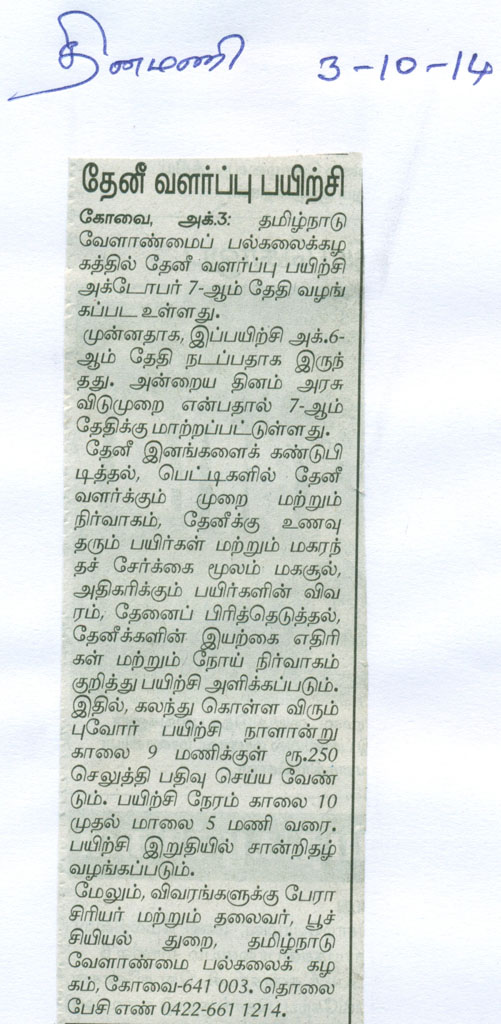 தினமணி 3-10-14
தேனீ வளர்ப்பு பயிற்சி
கோவை, அக்.3: தமிழ்நாடு
வேளாண்மைப் பல்கலைக்கழ
கத்தில் தேனீ வளர்ப்பு பயிற்சி
அக்டோபர் 7-ஆம் தேதி வழங்
கப்பட உள்ளது.
முன்னதாக, இப்பயிற்சி அக்.6-
ஆம் தேதி நடப்பதாக இருந்
தது. அன்றைய தினம் அரசு
விடுமுறை என்பதால் 7-ஆம்
தேதிக்கு மாற்றப்பட்டுள்ளது.
தேனீ இனங்களைக் கண்டுபி
டித்தல், பெட்டிகளில் தேனீ
வளர்க்கும் முறை மற்றும்
நிர்வாகம், தேனீக்கு உணவு
தரும் பயிர்கள் மற்றும் மகரந்
தச் சேர்க்கை மூலம் மகசூல்,
அதிகரிக்கும் பயிர்களின் விவ
ரம், தேனைப் பிரித்தெடுத்தல்,
தேனீக்களின் இயற்கை எதிரி
கள் மற்றும் நோய் நிர்வாகம்
குறித்து பயிற்சி அளிக்கப்படும்.
இதில், கலந்து கொள்ள விரும்
புவோர் பயிற்சி நாளான்று
காலை 9 மணிக்குள் ரூ.250
செலுத்தி பதிவு செய்ய வேண்
டும். பயிற்சி நேரம் காலை 10
முதல் மாலை 5 மணி வரை.
பயிற்சி இறுதியில் சான்றிதழ்
வழங்கப்படும்.
மேலும், விவரங்களுக்கு பேரா
சிரியர் மற்றும் தலைவர், பூச்
சியியல் துறை, தமிழ்நாடு
வேளாண்மை பல்கலைக் கழ
கம், கோவை-641 003. தொலை
பேசி எண் 0422-661 1214.